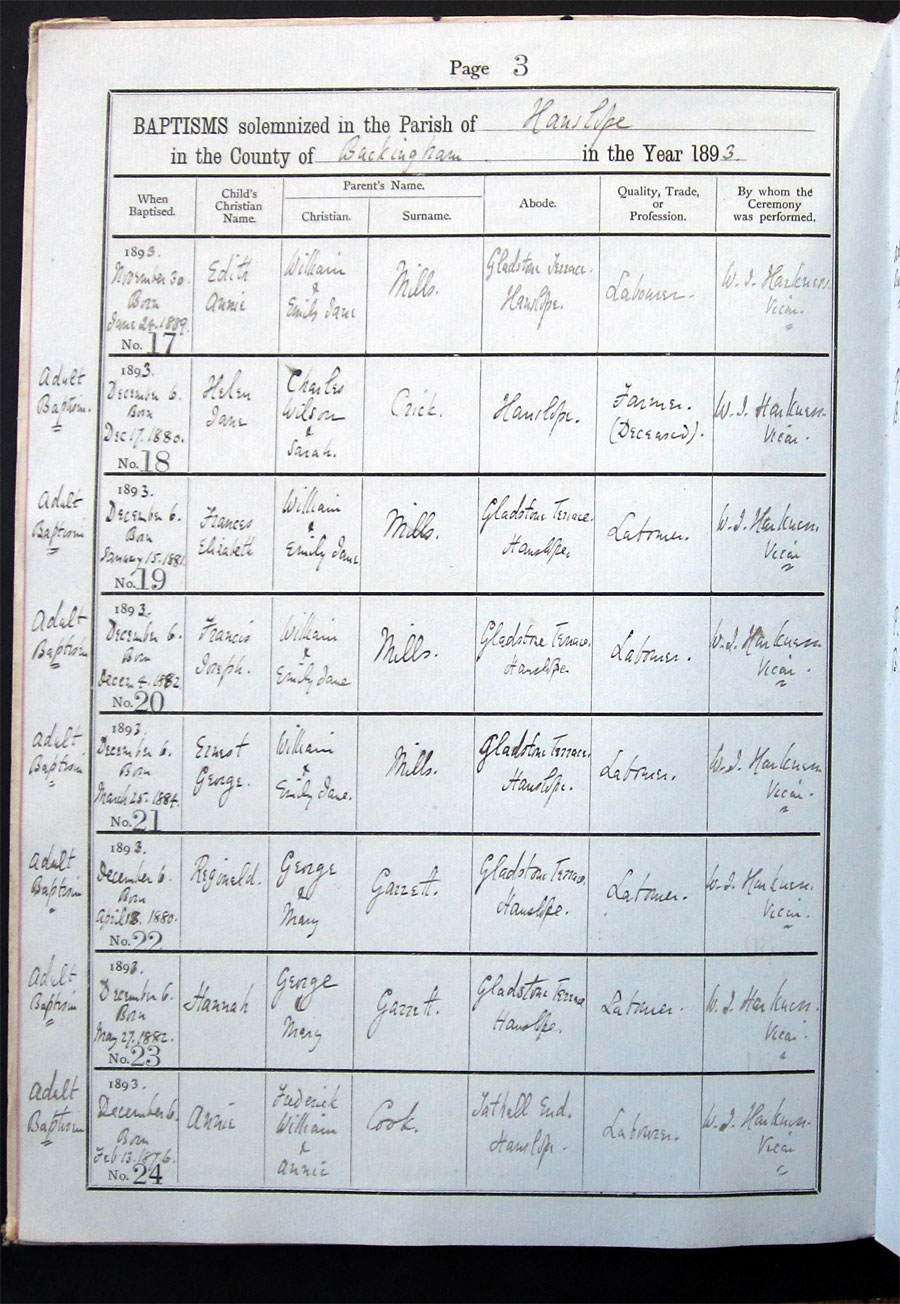 Page 3
BAPTISMS solemnized in the Parish of Hanslope
in the County of Buckingham in the Year 1893.
When Baptised.
Child's Christian Name.
Parent's Name.
Christian.
Surname.
Abode.
Quality, Trade, or Profession.
By whom the Ceremony was performed.
1893.
November 30.
Born
June 24. 1889.
No. 17
Edith
Annie
William
&
Emily Jane
Mills.
Gladstone Terrace.
Hanslope.
Labourer.
W. J. Harkness
Vicar.
Adult
Baptism.
1893.
December 6.
Born
Dec 17. 1880.
No. 18
Helen
Jane
Charles
Wilson
&
Sarah.
Crick.
Hanslope.
Farmer.
(Deceased).
W. J. Harkness
Vicar.
Adult
Baptism
1893.
December 6.
Born
January 15. 1881.
No. 19
Frances
Elizabeth
William
&
Emily Jane
Mills.
Gladstone Terrace.
Hanslope.
Labourer.
W. J. Harkness
Vicar
Adult
Baptism
1893.
December 6.
Born
1882
No. 20
Francis
Joseph.
William
&
Emily Jane
Mills.
Gladstone Terrace.
Hanslope.
Labourer.
W. J. Harkness
Vicar.
Adult
Baptism
1893
December 6.
Born
March 25. 1884.
No. 21
Ernest
George.
William
&
Emily Jane.
Mills.
Gladstone Terrace.
Hanslope.
Labourer.
W. J. Harkness
Vicar.
Adult
Baptism
1893.
December 6.
Born
April 1880.
No. 22
Reginald.
George
&
Mary
Garrett.
Gladstone Terrace.
Hanslope.
Labourer.
W. J. Harkness.
Vicar.
Adult
Baptism
1893.
December 6.
Born
May 27. 1882.
No. 23
Hannah
George
&
Mary
Garrett.
Gladstone Terrace
Hanslope.
Labourer.
W. J. Harkness.
Vicar.
Adult
Baptism
1893.
December 6.
Born
Feb 13. 1876.
No. 24
Annie
Frederick
William
&
Annie
Cook.
Tathall End.
Hanslope.
Labourer.
W. J. Harkness
Vicar